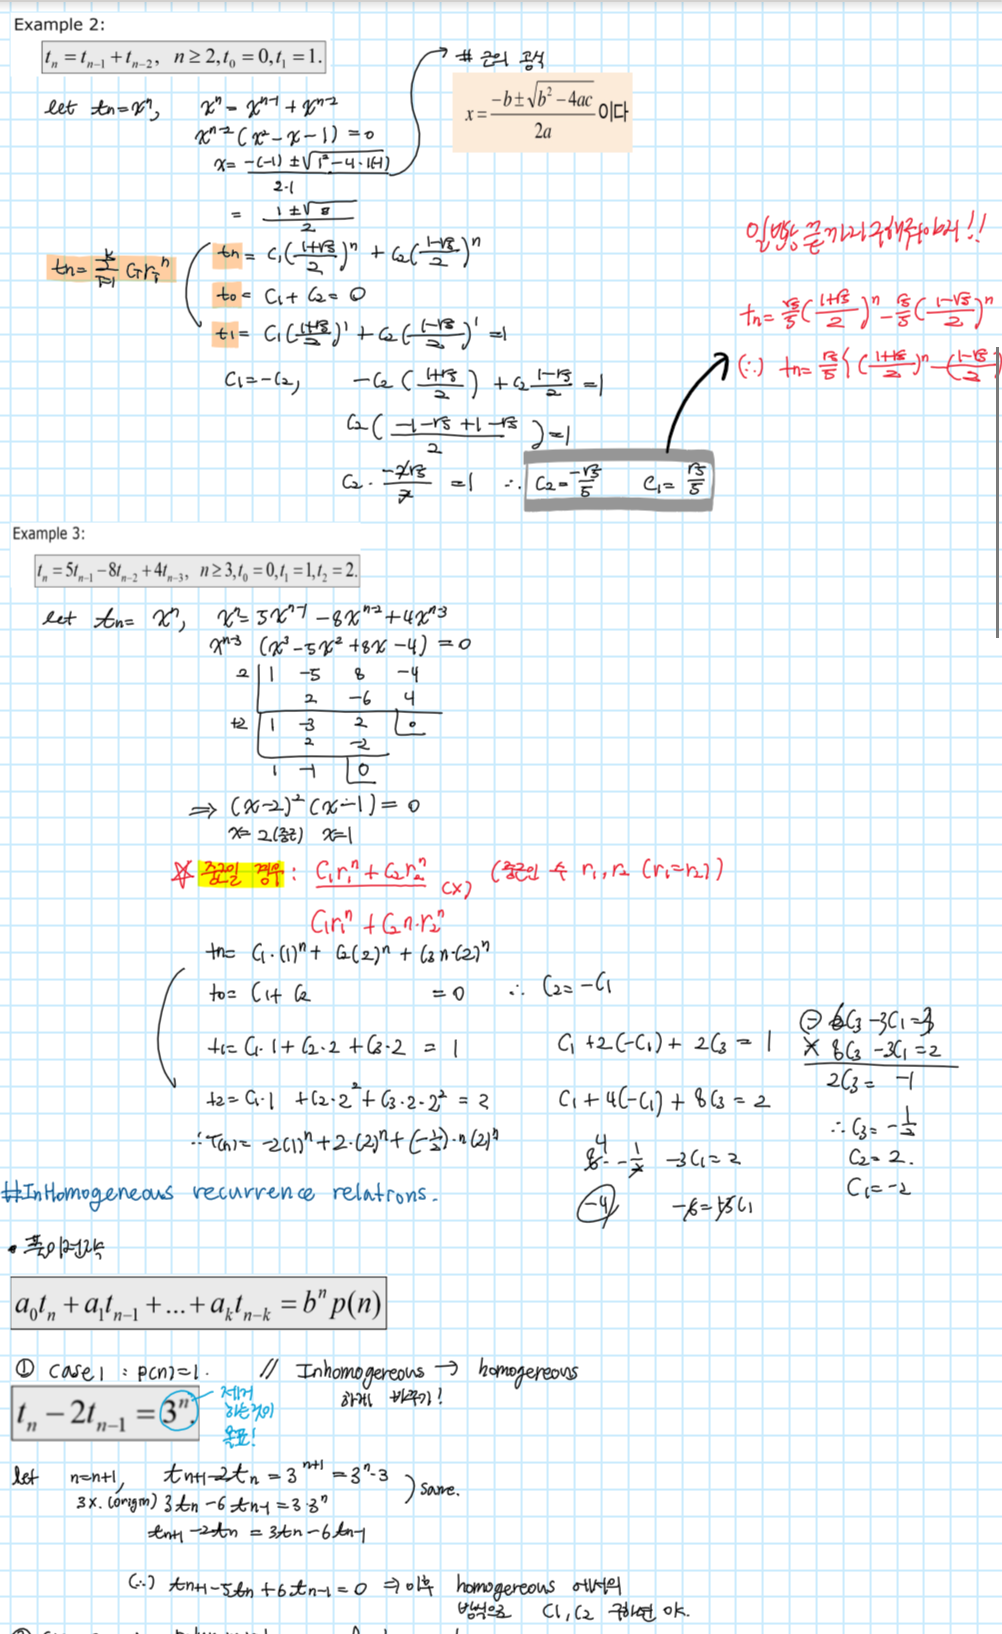 Example 2:
tₙ = tₙ₋₁ + tₙ₋₂, n ≥ 2, t₀ = 0, t₁ = 1.
# 근의 공식
x = (-b ± √(b² - 4ac)) / 2a 이다
let tn = xⁿ, xⁿ = xⁿ⁻¹ + xⁿ⁻²
xⁿ⁻² (x² - x - 1) = 0
x = (-(-1) ± √(1² - 4·1(-1))) / 2·1
= (1 ± √5) / 2
tn = Σ(i=1, k) Cᵢrᵢⁿ
tn = C₁((1+√5)/2)ⁿ + C₂((1-√5)/2)ⁿ
t₀ = C₁ + C₂ = 0
t₁ = C₁((1+√5)/2)¹ + C₂((1-√5)/2)¹ = 1
C₁ = -C₂, -C₂((1+√5)/2) + C₂ (1-√5)/2 = 1
C₂((-1-√5+1-√5)/2) = 1
C₂ · (-2√5)/2 = 1 ∴ C₂ = -√5/5 C₁ = √5/5
일반항 끝까지 구해줘야해!!
tn = √5/5((1+√5)/2)ⁿ - √5/5((1-√5)/2)ⁿ
(∴) tn = √5/5{((1+√5)/2)ⁿ - ((1-√5)/2)
Example 3:
tₙ = 5tₙ₋₁ - 8tₙ₋₂ + 4tₙ₋₃, n ≥ 3, t₀ = 0, t₁ = 1, t₂ = 2.
let tn = xⁿ, xⁿ = 5xⁿ⁻¹ - 8xⁿ⁻² + 4xⁿ⁻³
xⁿ⁻³ (x³ - 5x² + 8x - 4) = 0
2 | 1 -5 8 -4
2 -6 4
+2 | 1 -3 2 0
2 -2
1 -1 0
⇒ (x-2)² (x-1) = 0
x = 2(중근) x = 1
☆ 중근일 경우 : C₁r₁ⁿ + C₂r₂ⁿ (x) (중근인 수 r₁, r₂ (r₁=r₂))
C₁r₁ⁿ + C₂n·r₂ⁿ
tn = C₁·(1)ⁿ + C₂(2)ⁿ + C₃n·(2)ⁿ
t₀ = C₁ + C₂ = 0 ∴ C₂ = -C₁
t₁ = C₁·1 + C₂·2 + C₃·2 = 1 C₁ + 2(-C₁) + 2C₃ = 1
t₂ = C₁·1 + C₂·2² + C₃·2·2² = 2 C₁ + 4(-C₁) + 8C₃ = 2
∴ T(n) = -2(1)ⁿ + 2·(2)ⁿ + (-1/2)·n(2)ⁿ
⊖ 6C₃ - 3C₁ = 3
8C₃ - 3C₁ = 2
2C₃ = -1
∴ C₃ = -1/2
C₂ = 2.
C₁ = -2
8· -1/2 -3C₁ = 2
-4 -6 = 3C₁
#InHomogeneous recurrence relations.
• 풀이전략
a₀tₙ + a₁tₙ₋₁ + ... + aₖtₙ₋ₖ = bⁿ p(n)
① case 1 : p(n)=1. // Inhomogereous → homogereous
하게 바꾸기!
tₙ - 2tₙ₋₁ = 3ⁿ.
제거
하는것이
목표!
let n=n+1, tn+1 - 2tn = 3ⁿ⁺¹ = 3ⁿ·3
3x. (origin) 3tn - 6tn-1 = 3·3ⁿ
) same.
tn+1 - 2tn = 3tn - 6tn-1
(∴) tn+1 - 5tn + 6tn-1 = 0 ⇒ 이후 homogereous 에서의
방식으로 C1, C2 구하면 ok.